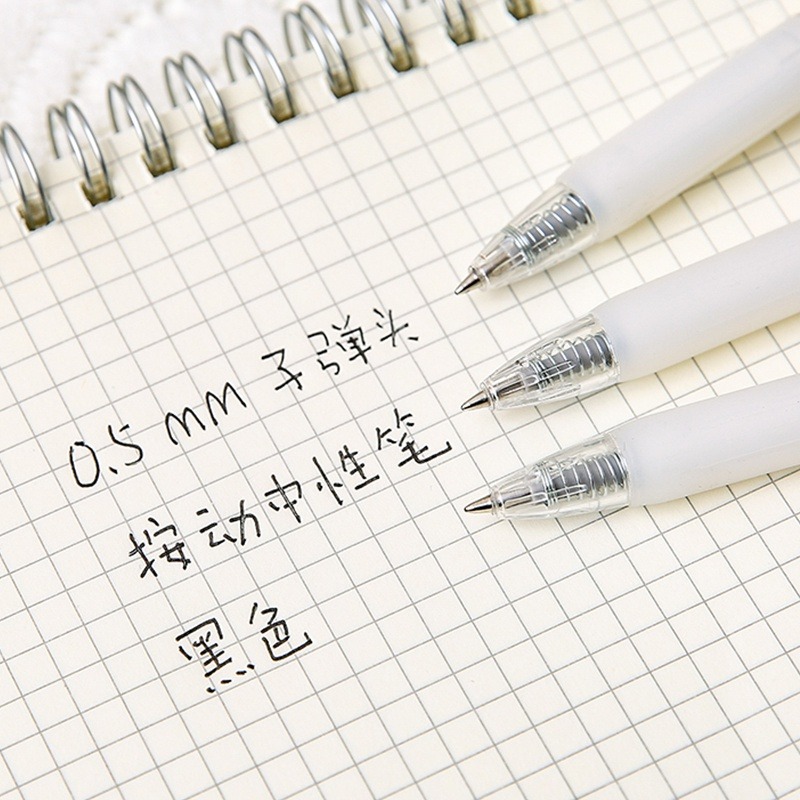 0.5 mm 子弹头
按动中性笔
黑色